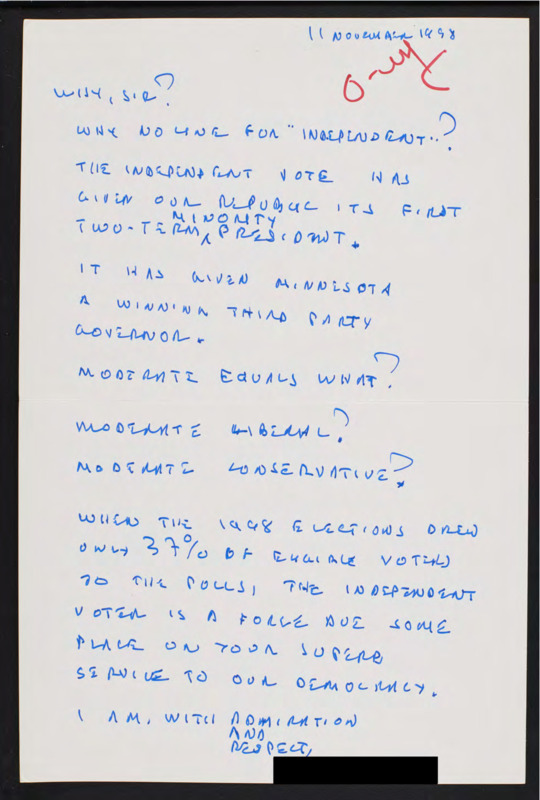 11 NOVEMBER 1998
WHY, SIR?
WHY NO LINE FOR "INDEPENDENT"?
THE INDEPENDENT VOTE HAS
GIVEN OUR REPUBLIC ITS FIRST
MINORITY
TWO-TERM PRESIDENT.
IT HAS GIVEN MINNESOTA
A WINNING THIRD PARTY
GOVERNOR.
MODERATE EQUALS WHAT?
MODERATE LIBERAL?
MODERATE CONSERVATIVE?
WHEN THE 1998 ELECTIONS DREW
ONLY 37% OF ELIGIBLE VOTERS
TO THE POLLS, THE INDEPENDENT
VOTER IS A FORCE DUE SOME
PLACE ON YOUR SUPERB
SERVICE TO OUR DEMOCRACY.
I AM, WITH ADMIRATION
AND
RESPECT,